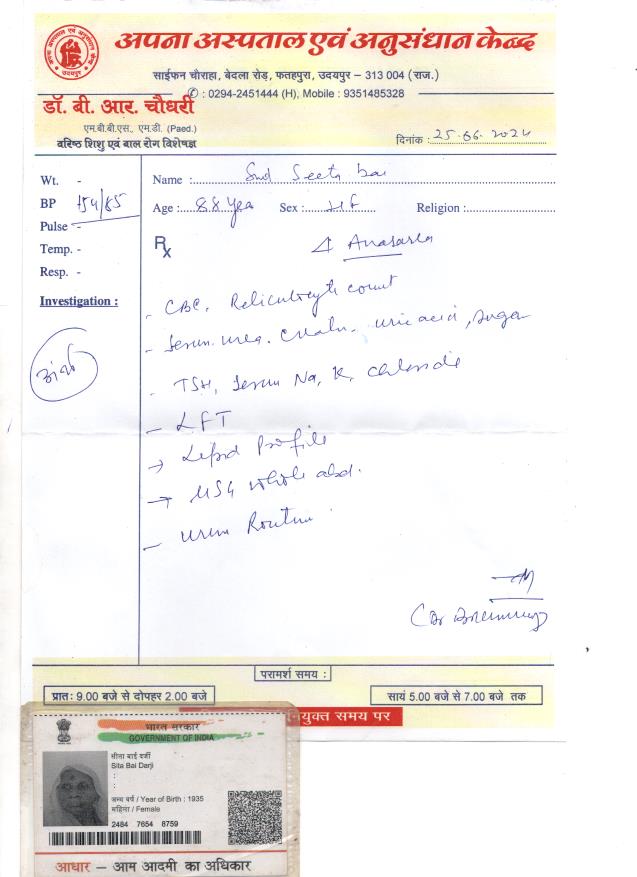 अपना अस्पताल एवं अनुसंधान केन्द्र
साईफन चौराहा, बेदला रोड़, फतहपुरा, उदयपुर – 313 004 (राज.)
✆ : 0294-2451444 (H), Mobile : 9351485328
डॉ. बी. आर. चौधरी
एम.बी.बी.एस., एम.डी. (Paed.)
वरिष्ठ शिशु एवं बाल रोग विशेषज्ञ
दिनांक : 25.06.2024
Wt. -
Name : Smt Seeta bai
BP 154/85
Age : 88 Yea Sex : F Religion :
Pulse -
Rx
Anasarca
Temp. -
Resp. -
Investigation :
- CBC, Reticulocyte count
- Serum urea. uric acid, sugar
जांच
- TSH, Serum Na, K, chloride
- LFT
→ Lipid Profile
→ USG whole abd.
- Urine Routine
परामर्श समय :
प्रातः 9.00 बजे से दोपहर 2.00 बजे
सायं 5.00 बजे से 7.00 बजे तक
नियुक्त समय पर
भारत सरकार
GOVERNMENT OF INDIA
सीता बाई दर्जी
Sita Bai Darji
जन्म वर्ष / Year of Birth : 1935
महिला / Female
2484 7654 8759
आधार – आम आदमी का अधिकार